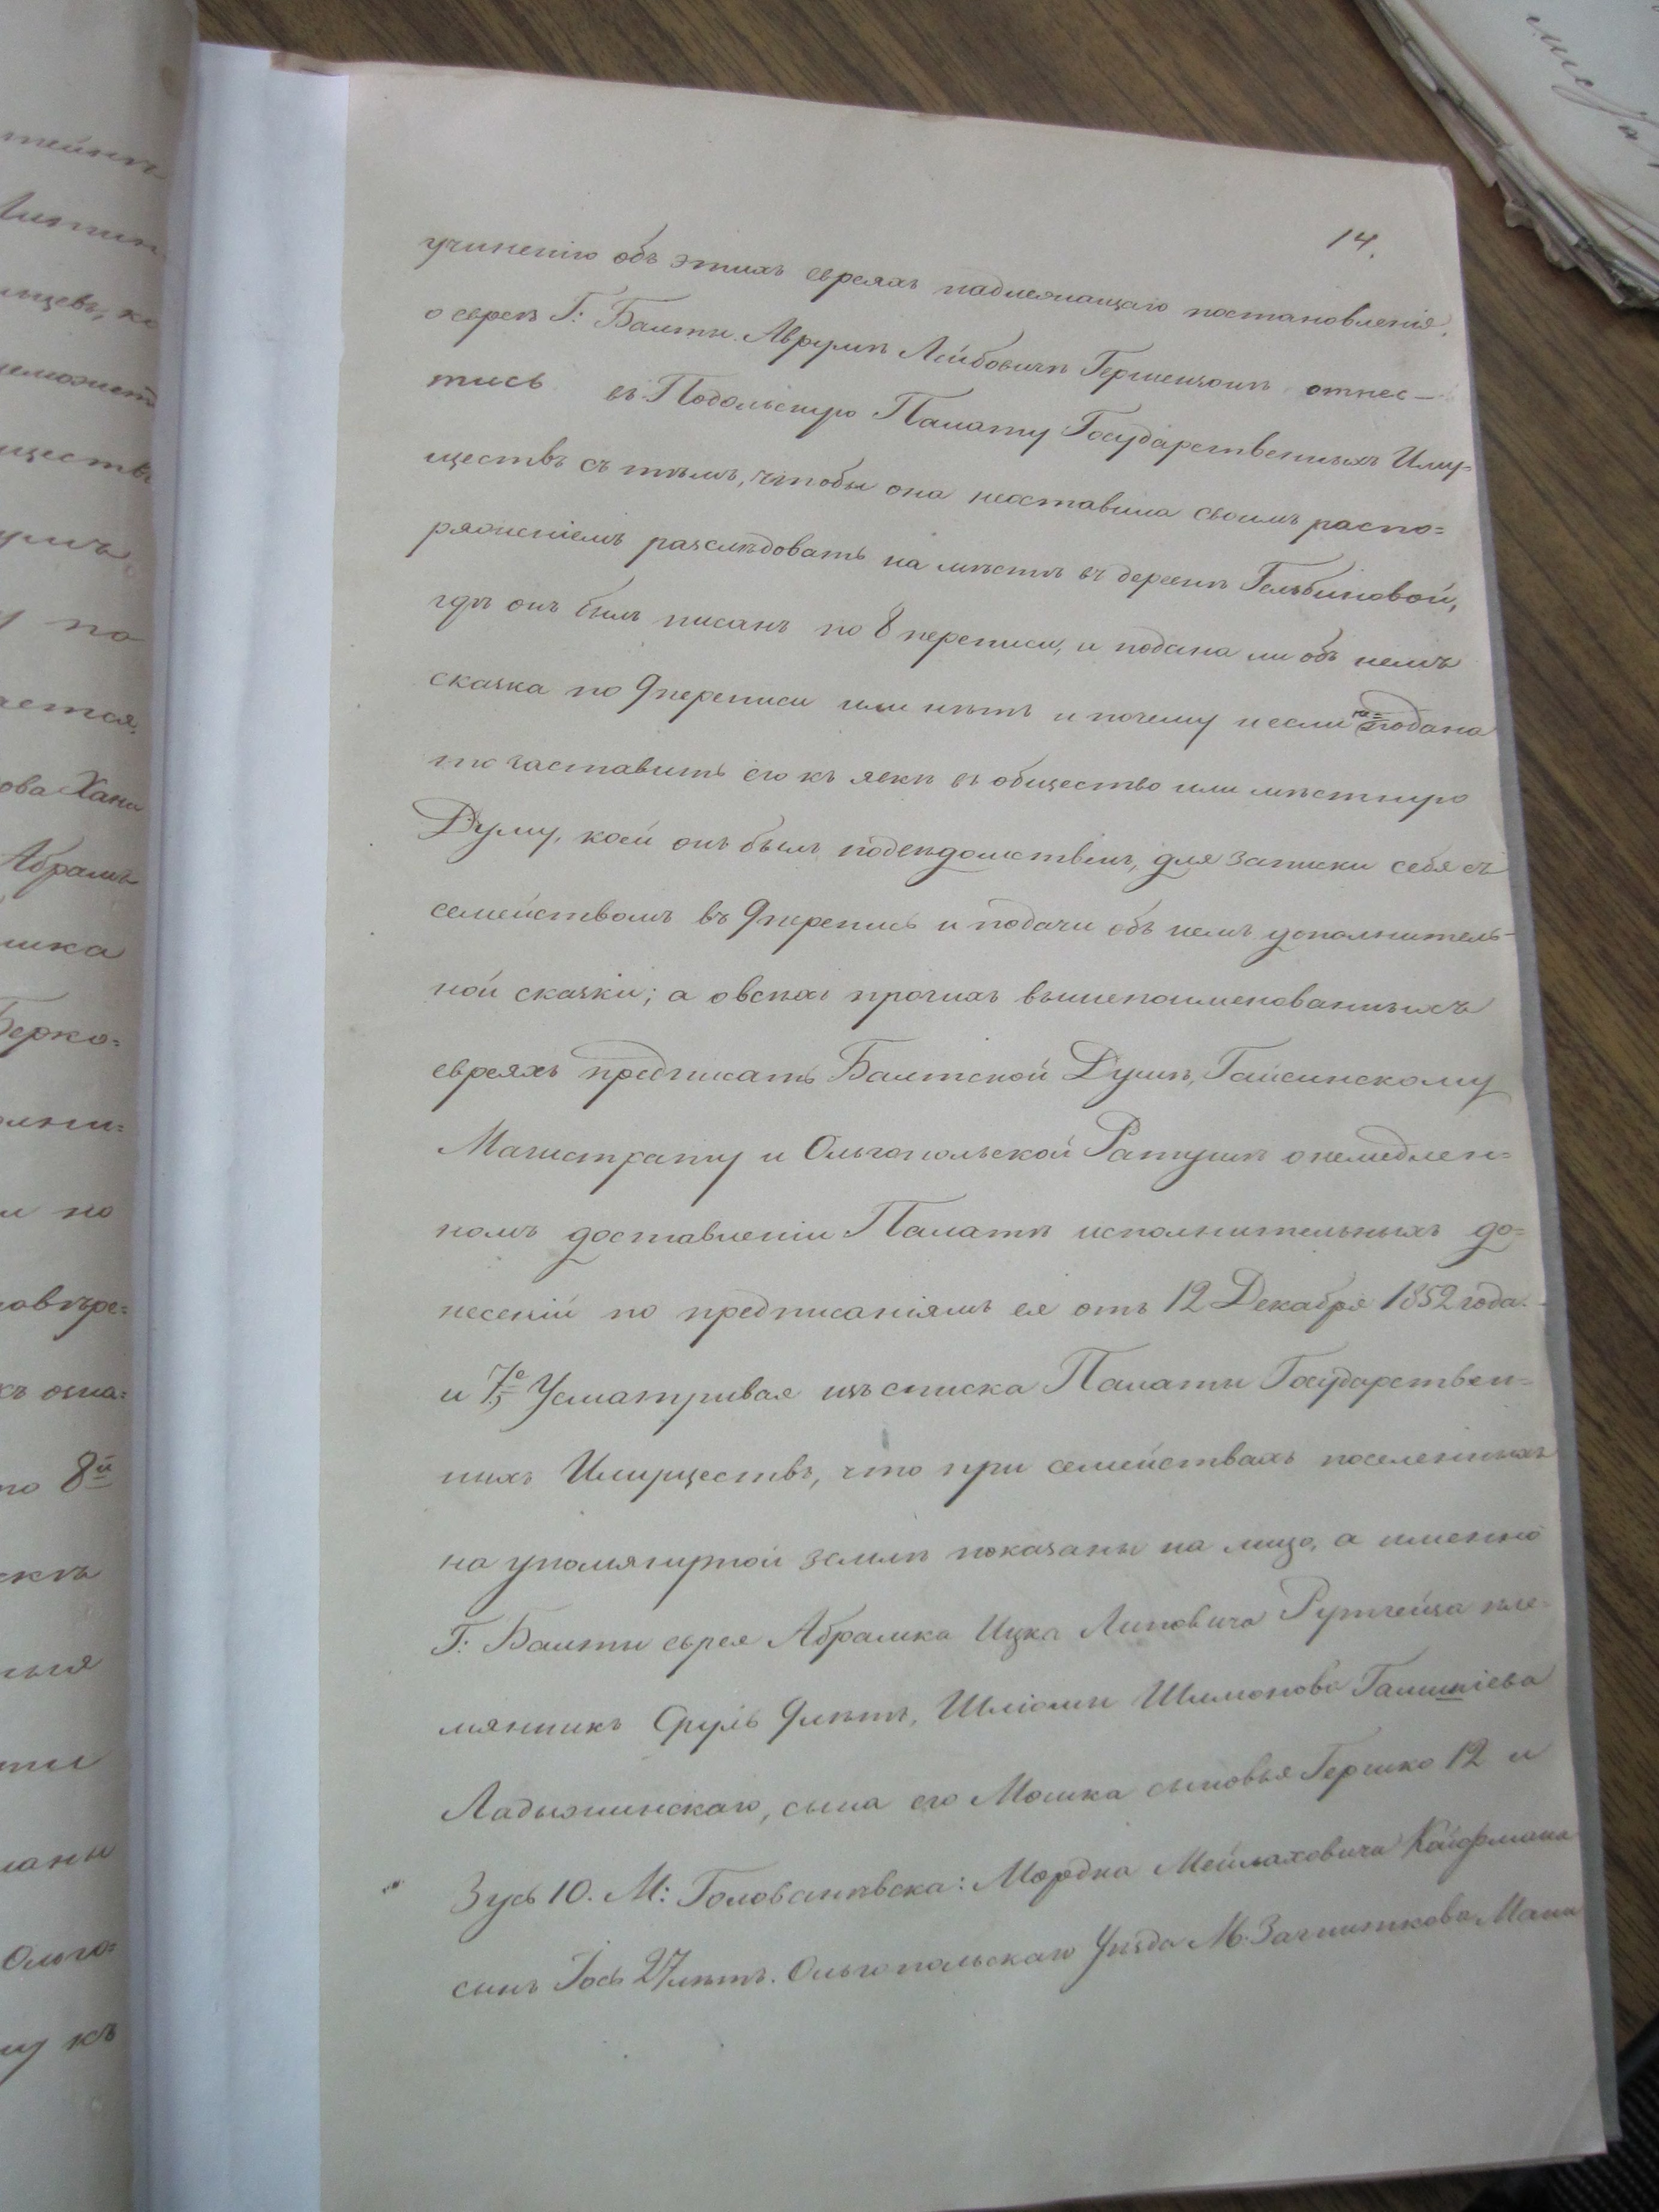 14.
учиненію объ этихъ евреяхъ надлежащаго постановленія.
о евреѣ Г: Балты Аврумѣ Лейбовичѣ Гершензонѣ отнес-
тись въ Подольскую Палату Государственныхъ Иму-
ществъ съ тѣмъ, чтобы она неоставила своимъ распо=
ряженіемъ разслѣдовать на мѣстѣ въ деревнѣ Гельбиновой,
гдѣ онъ былъ писанъ по 8 переписи, и подана ли объ немъ
сказка по 9 переписи или нѣтъ и почему и если не= подана
то заставить его къ явкѣ въ общество или мѣстную
Думу, коей онъ былъ подвѣдомственъ, для записки себя съ
семействомъ въ 9 перепись и подачи объ немъ дополнитель-
ной сказки; а овсѣхъ прочихъ вышепоименованныхъ
евреяхъ предписать Балтской Думѣ, Гайсинскому
Магистрату и Ольгопольской Ратушѣ о немедлен=
номъ доставленіи Палатѣ исполнительныхъ до=
несеній по предписаніямъ ея отъ 12 Декабря 1852 года.
и 7е Усматривая изъ списка Палаты Государствен=
ныхъ Имуществъ, что при семействахъ поселенныхъ
на упомянутой землѣ показаны на лицо, а именно
Г: Балты еврея Абрамка Ицка Липовича пле-
мянникъ Сруль 9 лѣтъ, Шліомы Шлиомова
Ладыжинскаго, сына его Мошка сыновья Гершко 12 и
Зусь 10. М: Голованѣвска: Мордка Мейлаховича Кайфмана
сынъ Іось 27 лѣтъ. Ольгопольскаго Уѣзда М.
тейнъ
ова Хани
Абрамъ
шка
Берко=
и по
по 8й
Ольго=